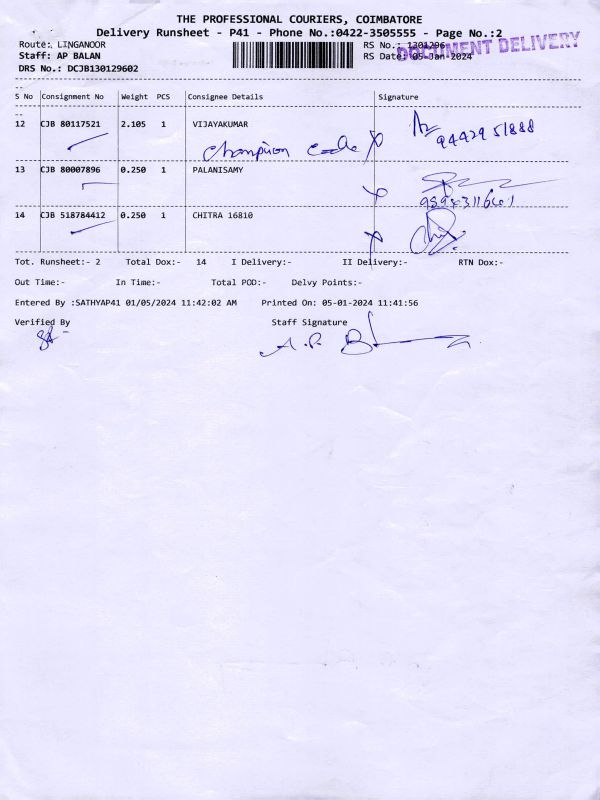 THE PROFESSIONAL COURIERS, COIMBATORE
Delivery Runsheet - P41 - Phone No.:0422-3505555 - Page No.:2
Route: LINGANOOR RS No.: 1301296
DOCUMENT DELIVERY
Staff: AP BALAN RS Date: 05-Jan-2024
DRS No.: DCJB130129602
S No Consignment No Weight PCS Consignee Details Signature
12 CJB 80117521 2.105 1 VIJAYAKUMAR
Champion 9442951888
13 CJB 80007896 0.250 1 PALANISAMY
14 CJB 518784412 0.250 1 CHITRA 16810
Tot. Runsheet:- 2 Total Dox:- 14 I Delivery:- II Delivery:- RTN Dox:-
Out Time:- In Time:- Total POD:- Delvy Points:-
Entered By :SATHYAP41 01/05/2024 11:42:02 AM Printed On: 05-01-2024 11:41:56
Verified By Staff Signature